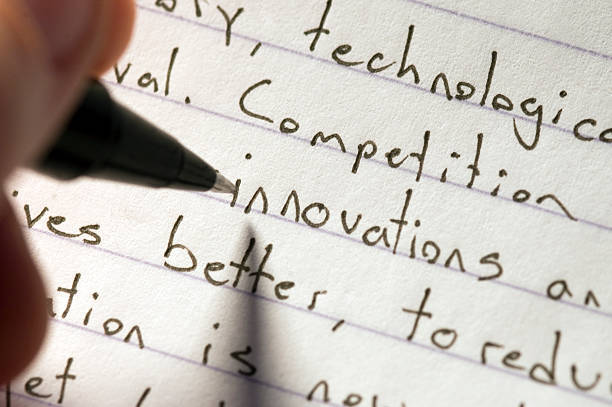 technologica
val. Competition
innovations an
ives better, to redu
ation is
et